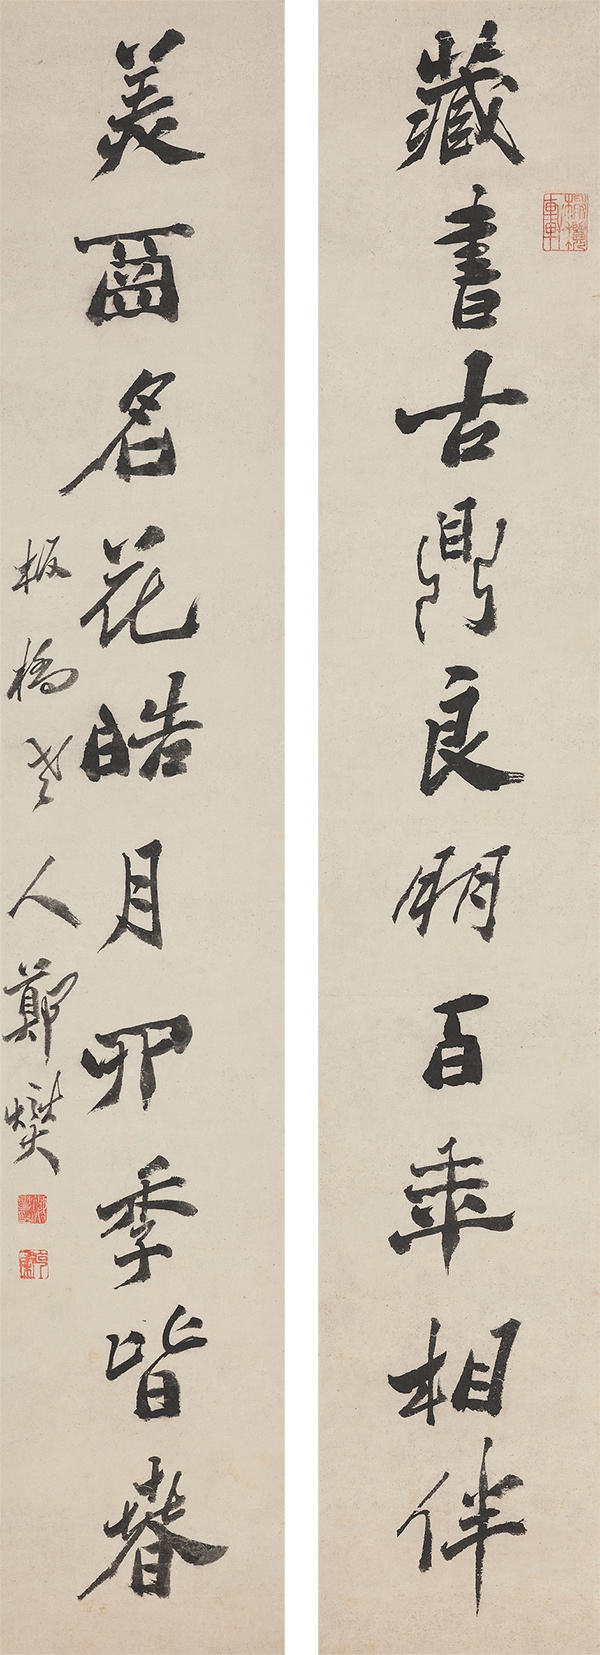 藏書古鼎良朋百年相伴
橄欖軒
美名花皓月四季皆春
板橋老人鄭燮